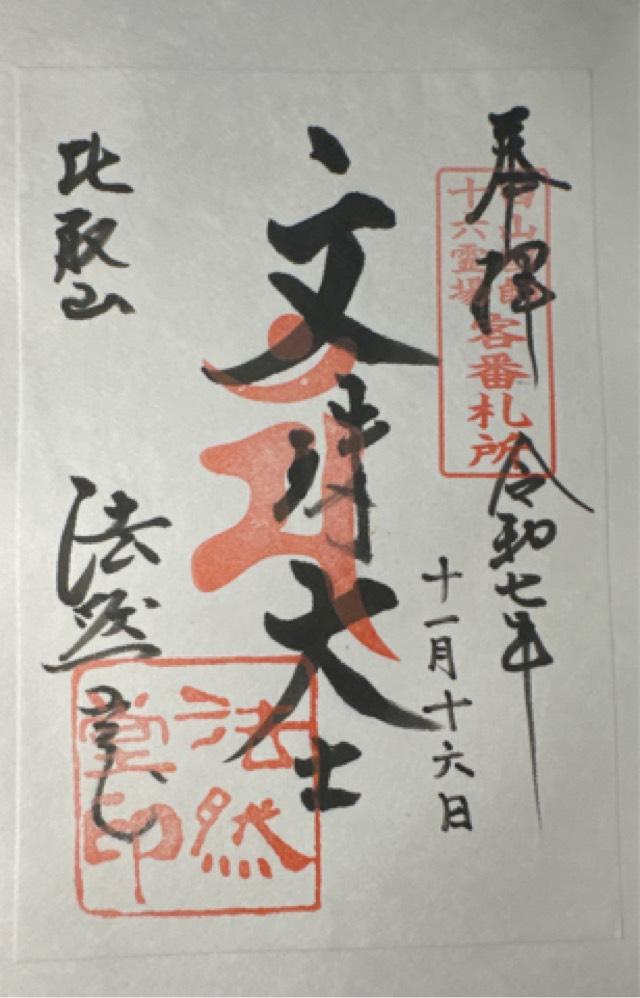 奉拝 令和七年
西山国師
十六霊場
客番札所
十一月十六日
文殊大士
比叡山 法然堂
法然
堂印